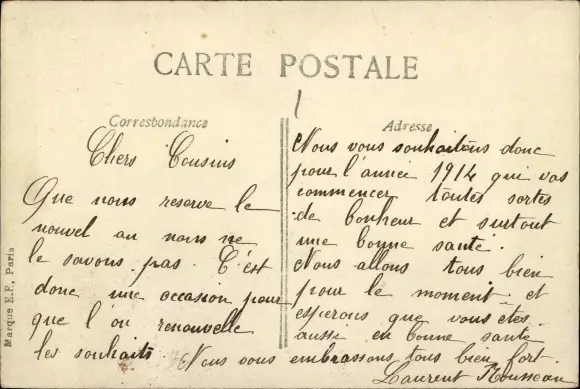 CARTE POSTALE
Correspondance
Chers Cousins
Que nous reserve le
nouvel an nous ne
le savons pas. C'est
donc une occasion pour
que l'on renouvelle
les souhaits.
Adresse
Nous vous souhaitons donc
pour l'année 1914 qui vas
commencer toutes sortes
de bonheur et surtout
une bonne santé.
Nous allons tous bien
pour le moment et
espérons que vous êtes
aussi en bonne santé
Nous vous embrassons tous bien fort.
Laurent Rousseau
Marque E.F., Paris